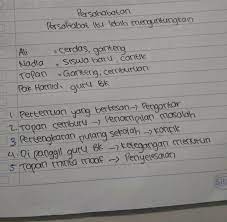 Persahabatan
Persahabat itu lebih menguntungkan
Ali = cerdas, ganteng
Nadia = Siswa baru, cantik
Topan = Ganteng, cemburuan
Pak Hamid, guru BK
1. Pertemuan yang berkesan → Pengantar
2. Topan cemburu → Penampilan masalah
3 Pertengkaran pulang sekolah → komplik
4. Di panggil guru BK → ketegangan menurun
5 Topan minta maaf → Penyelesaian